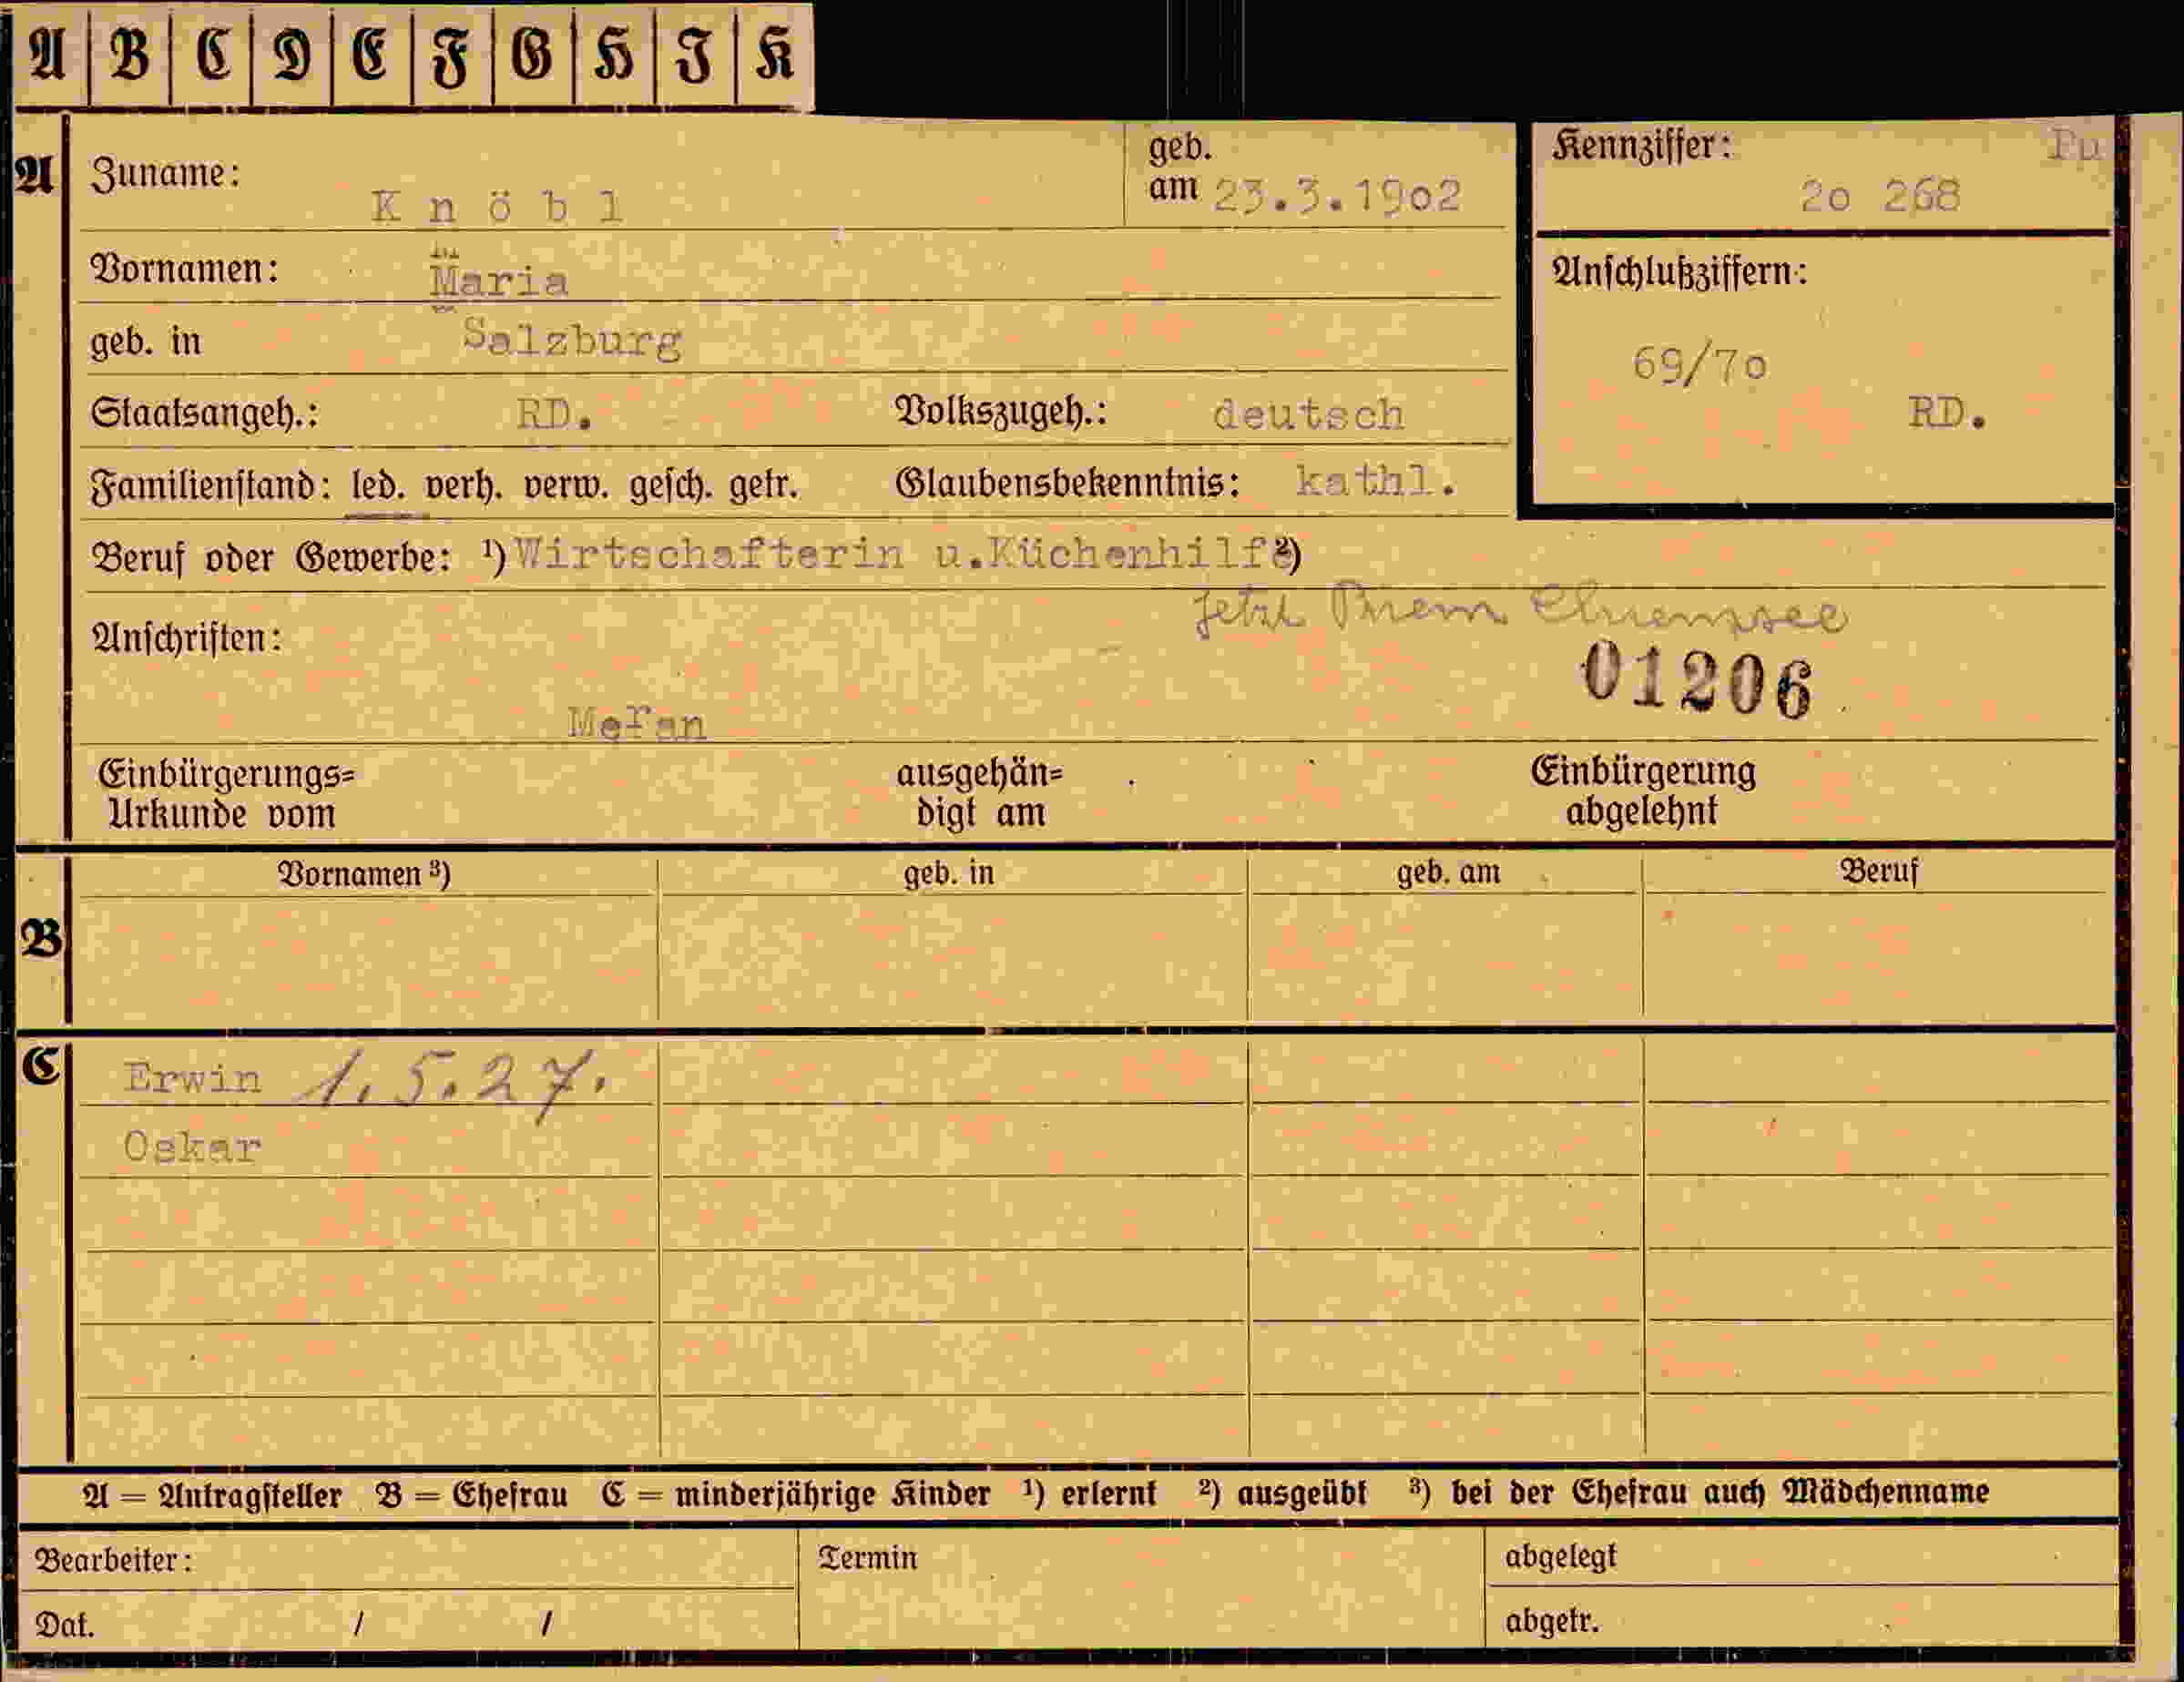 A B C D E F G H I K
A Zuname: Knöbl geb. am 23.3.1902
Kennziffer: Pu
20 268
Vornamen: Maria
Anschlußziffern:
geb. in Salzburg
69/70
Staatsangeh.: RD. Volkszugeh.: deutsch
RD.
Familienstand: led. verh. verw. gesch. getr. Glaubensbekenntnis: kathl.
Beruf oder Gewerbe: ¹) Wirtschafterin u.Küchenhilfe ²)
Jetzt Prien Chiemsee
Anschriften:
01206
Meran
Einbürgerungs= ausgehän= Einbürgerung
Urkunde vom digt am abgelehnt
Vornamen ³) geb. in geb. am Beruf
B
C Erwin 1.5.27.
Oskar
A = Antragsteller B = Ehefrau C = minderjährige Kinder ¹) erlernt ²) ausgeübt ³) bei der Ehefrau auch Mädchenname
Bearbeiter: Termin abgelegt
Dat. / / abgetr.